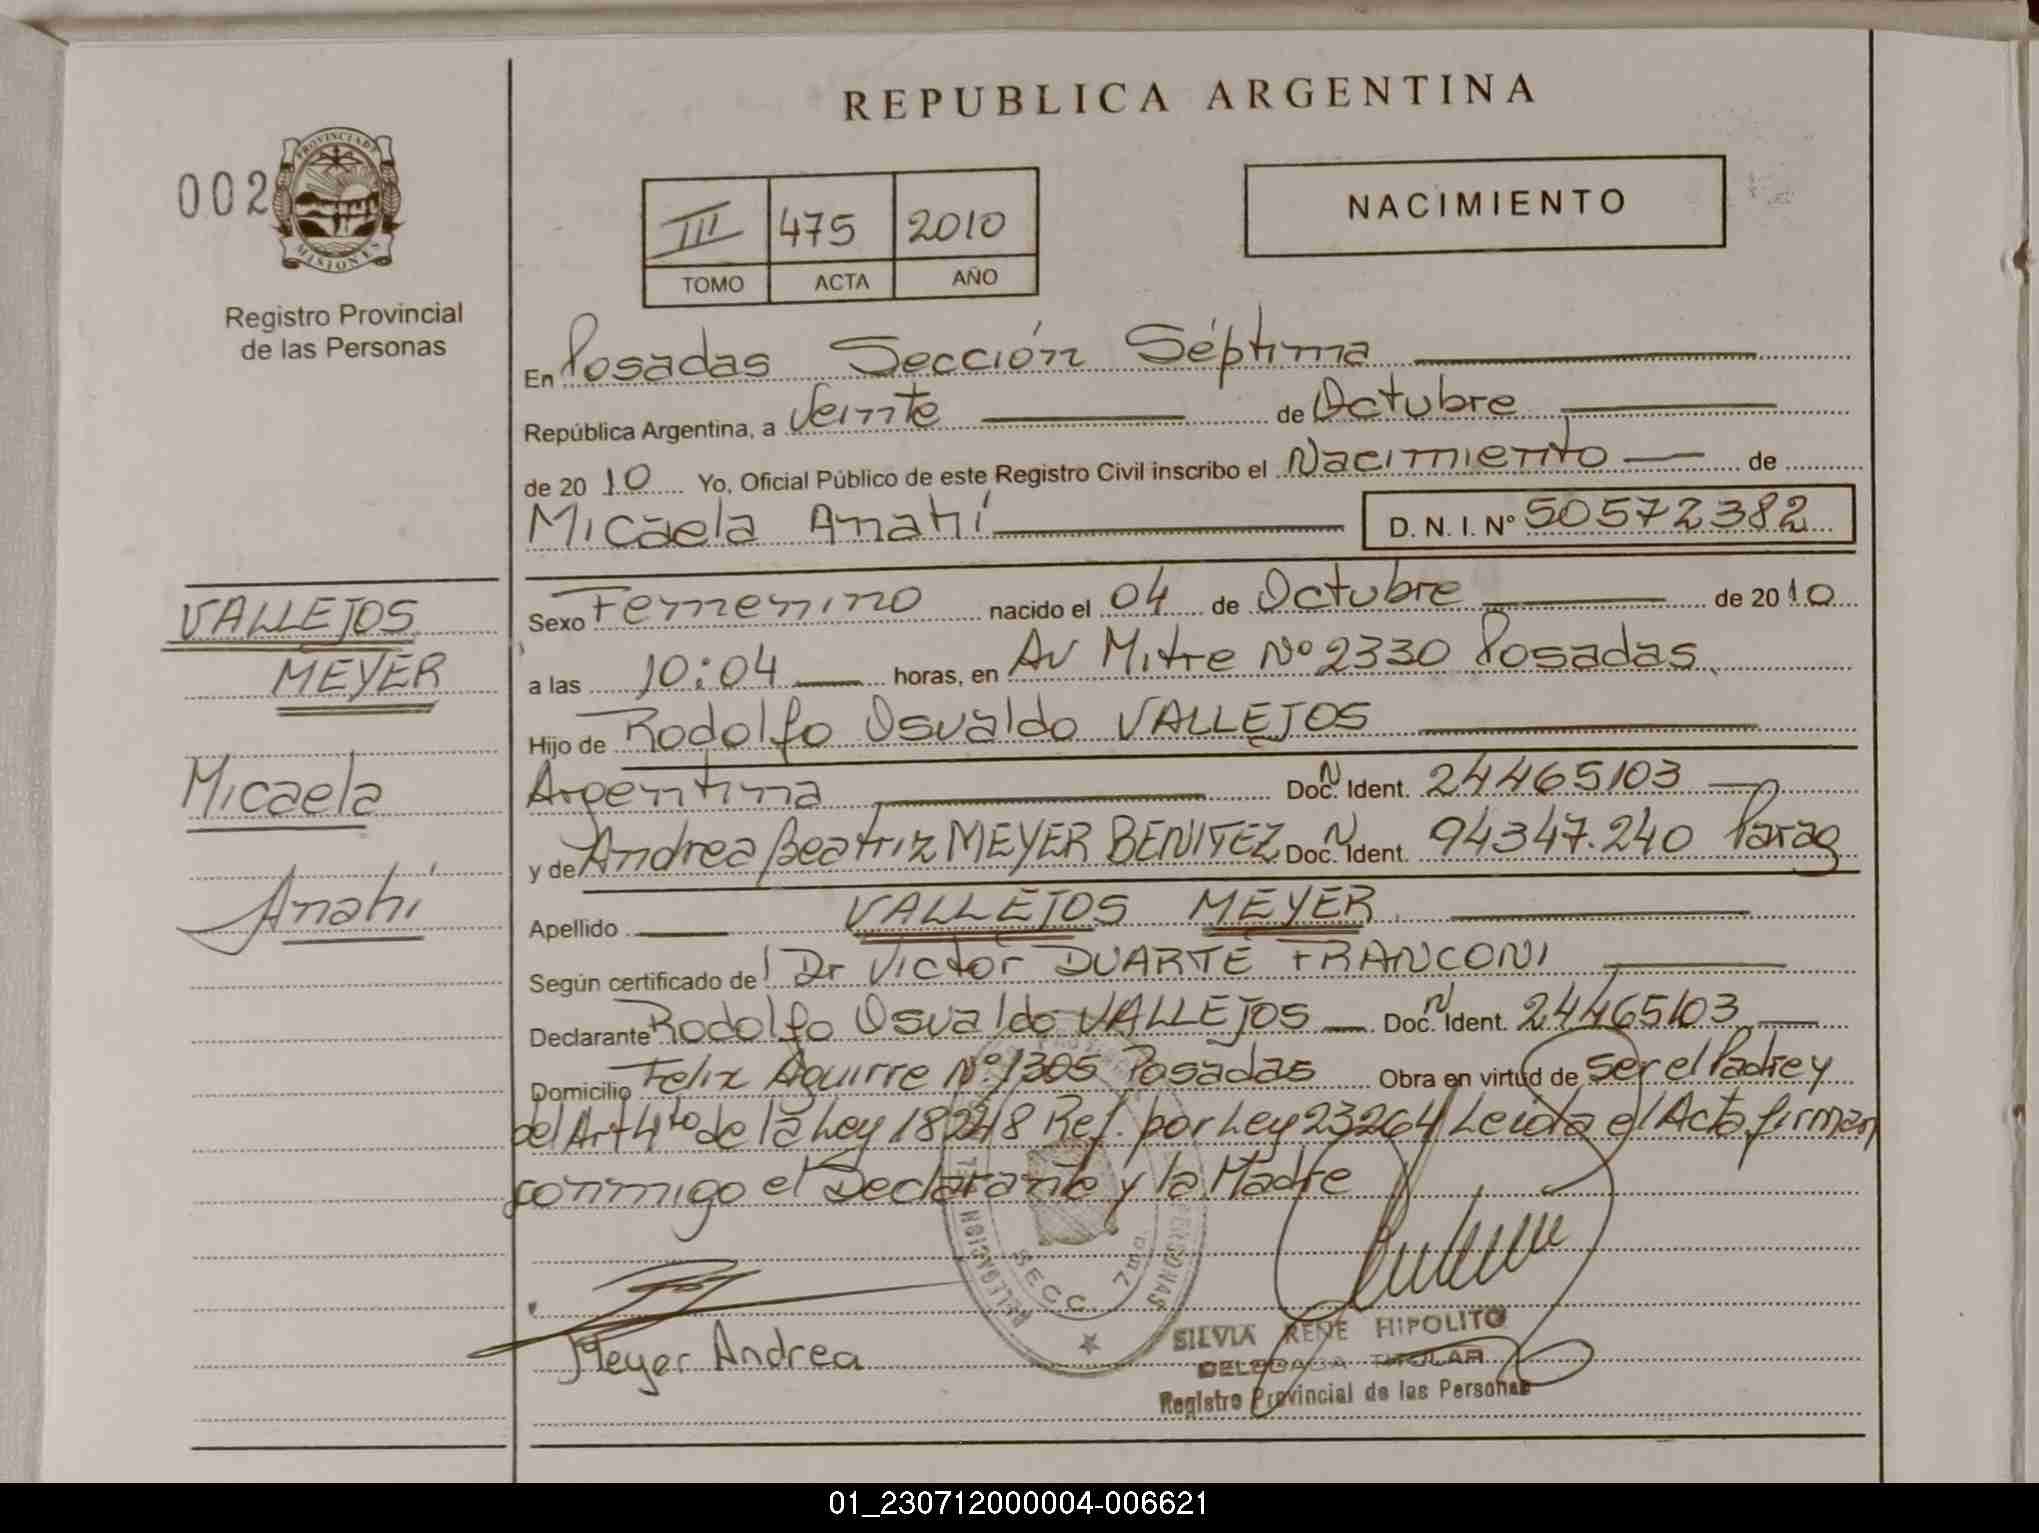 REPUBLICA ARGENTINA
002
PROVINCIA DE
MISIONES
Registro Provincial
de las Personas
III 475 2010
TOMO ACTA AÑO
NACIMIENTO
En Posadas Sección Séptima
República Argentina, a Veinte de Octubre
de 2010 Yo, Oficial Público de este Registro Civil inscribo el Nacimiento de
Micaela Anahí D. N. I. Nº 50572382
VALLEJOS
MEYER
Micaela
Anahí
Sexo Femenino nacido el 04 de Octubre de 2010
a las 10:04 horas, en Av Mitre Nº 2330 Posadas
Hijo de Rodolfo Osvaldo VALLEJOS
Argentina Doc. N Ident. 24465103
y de Andrea Beatriz MEYER BENITEZ Doc. N Ident. 94347.240 Parag
Apellido VALLEJOS MEYER
Según certificado de Dr Victor DUARTE FRANCONI
Declarante Rodolfo Osvaldo VALLEJOS Doc. N Ident. 24465103
Domicilio Felix Aguirre Nº 1305 Posadas Obra en virtud de ser el Padre y
del Art 4to de la Ley 18248 Ref. por Ley 23264 Leida el Acta firman
conmigo el Declarante y la Madre
DELEGACION
PERSONAS
SECC. 7ma
Meyer Andrea
SILVIA RENE HIPOLITO
DELEGADA TITULAR
Registro Provincial de las Personas
01_230712000004-006621